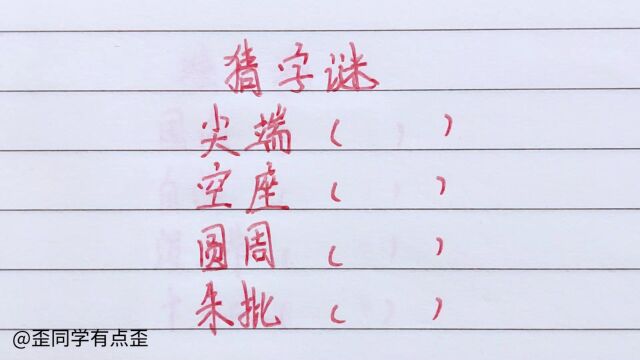 猜字谜
尖端( )
空座( )
圆周( )
朱批( )
@歪同学有点歪